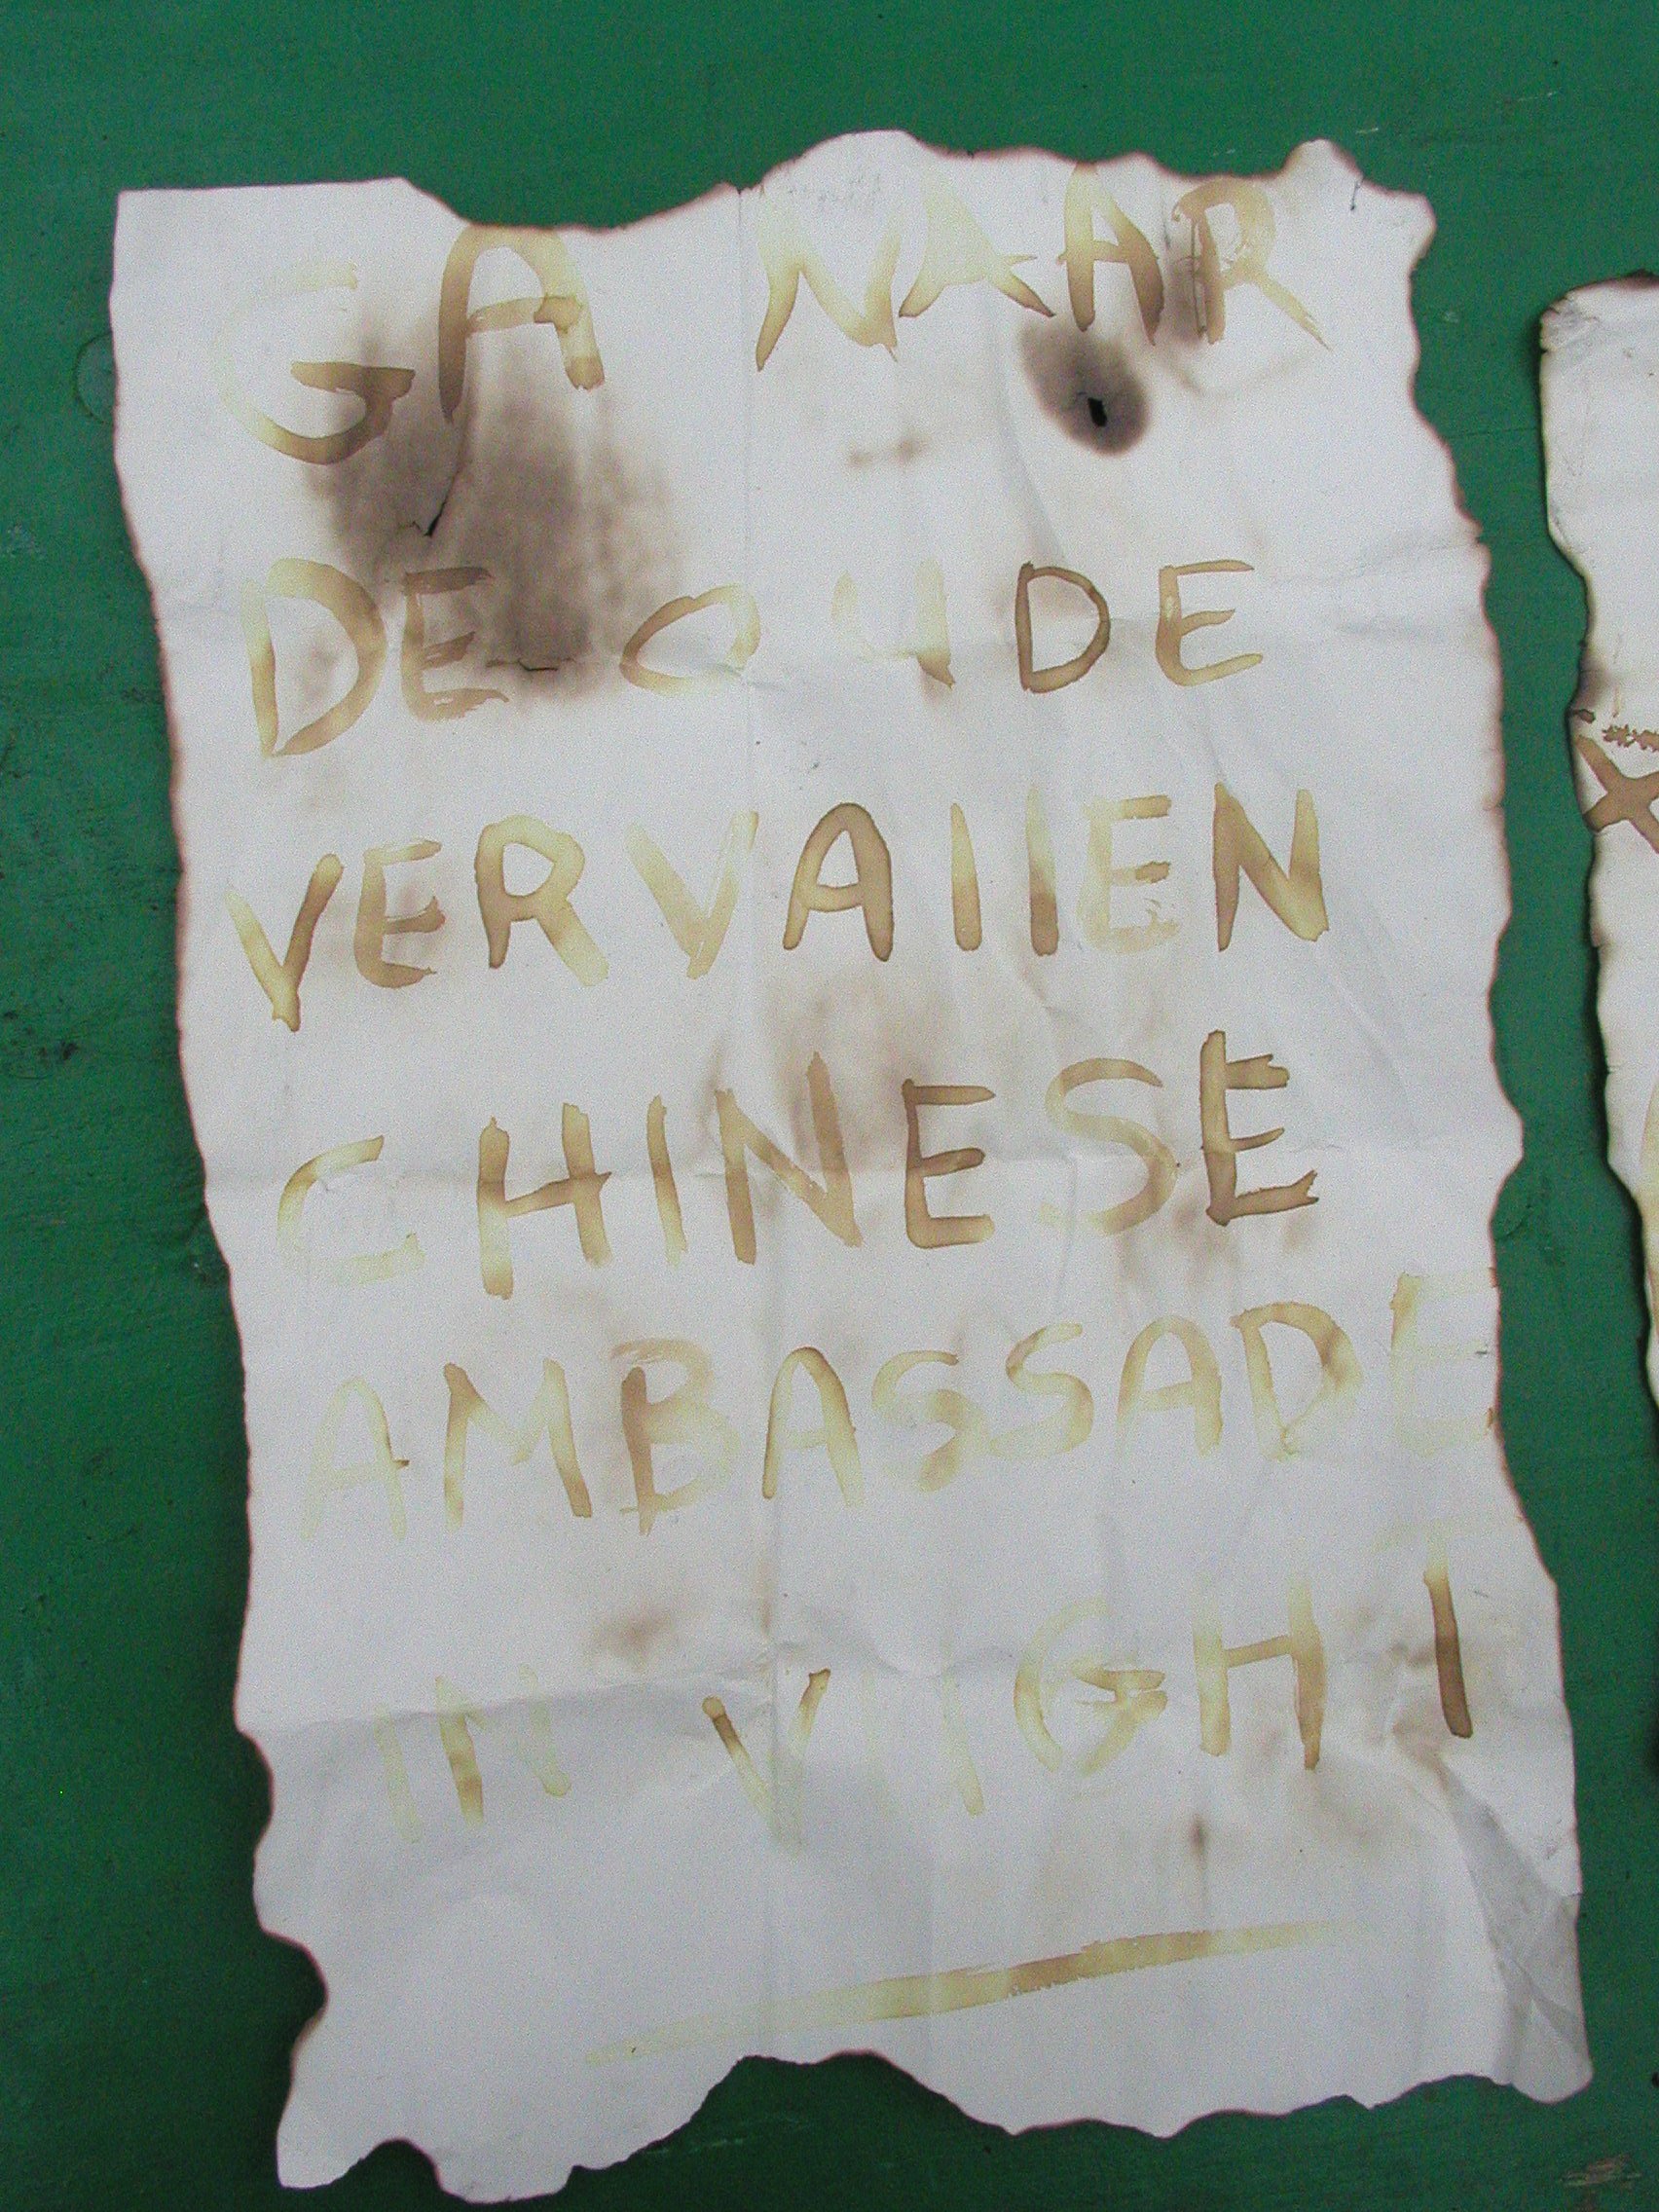 GA NAAR
DE OUDE
VERVAllEN
CHINESE
AMBASSADE
IN VUGHT